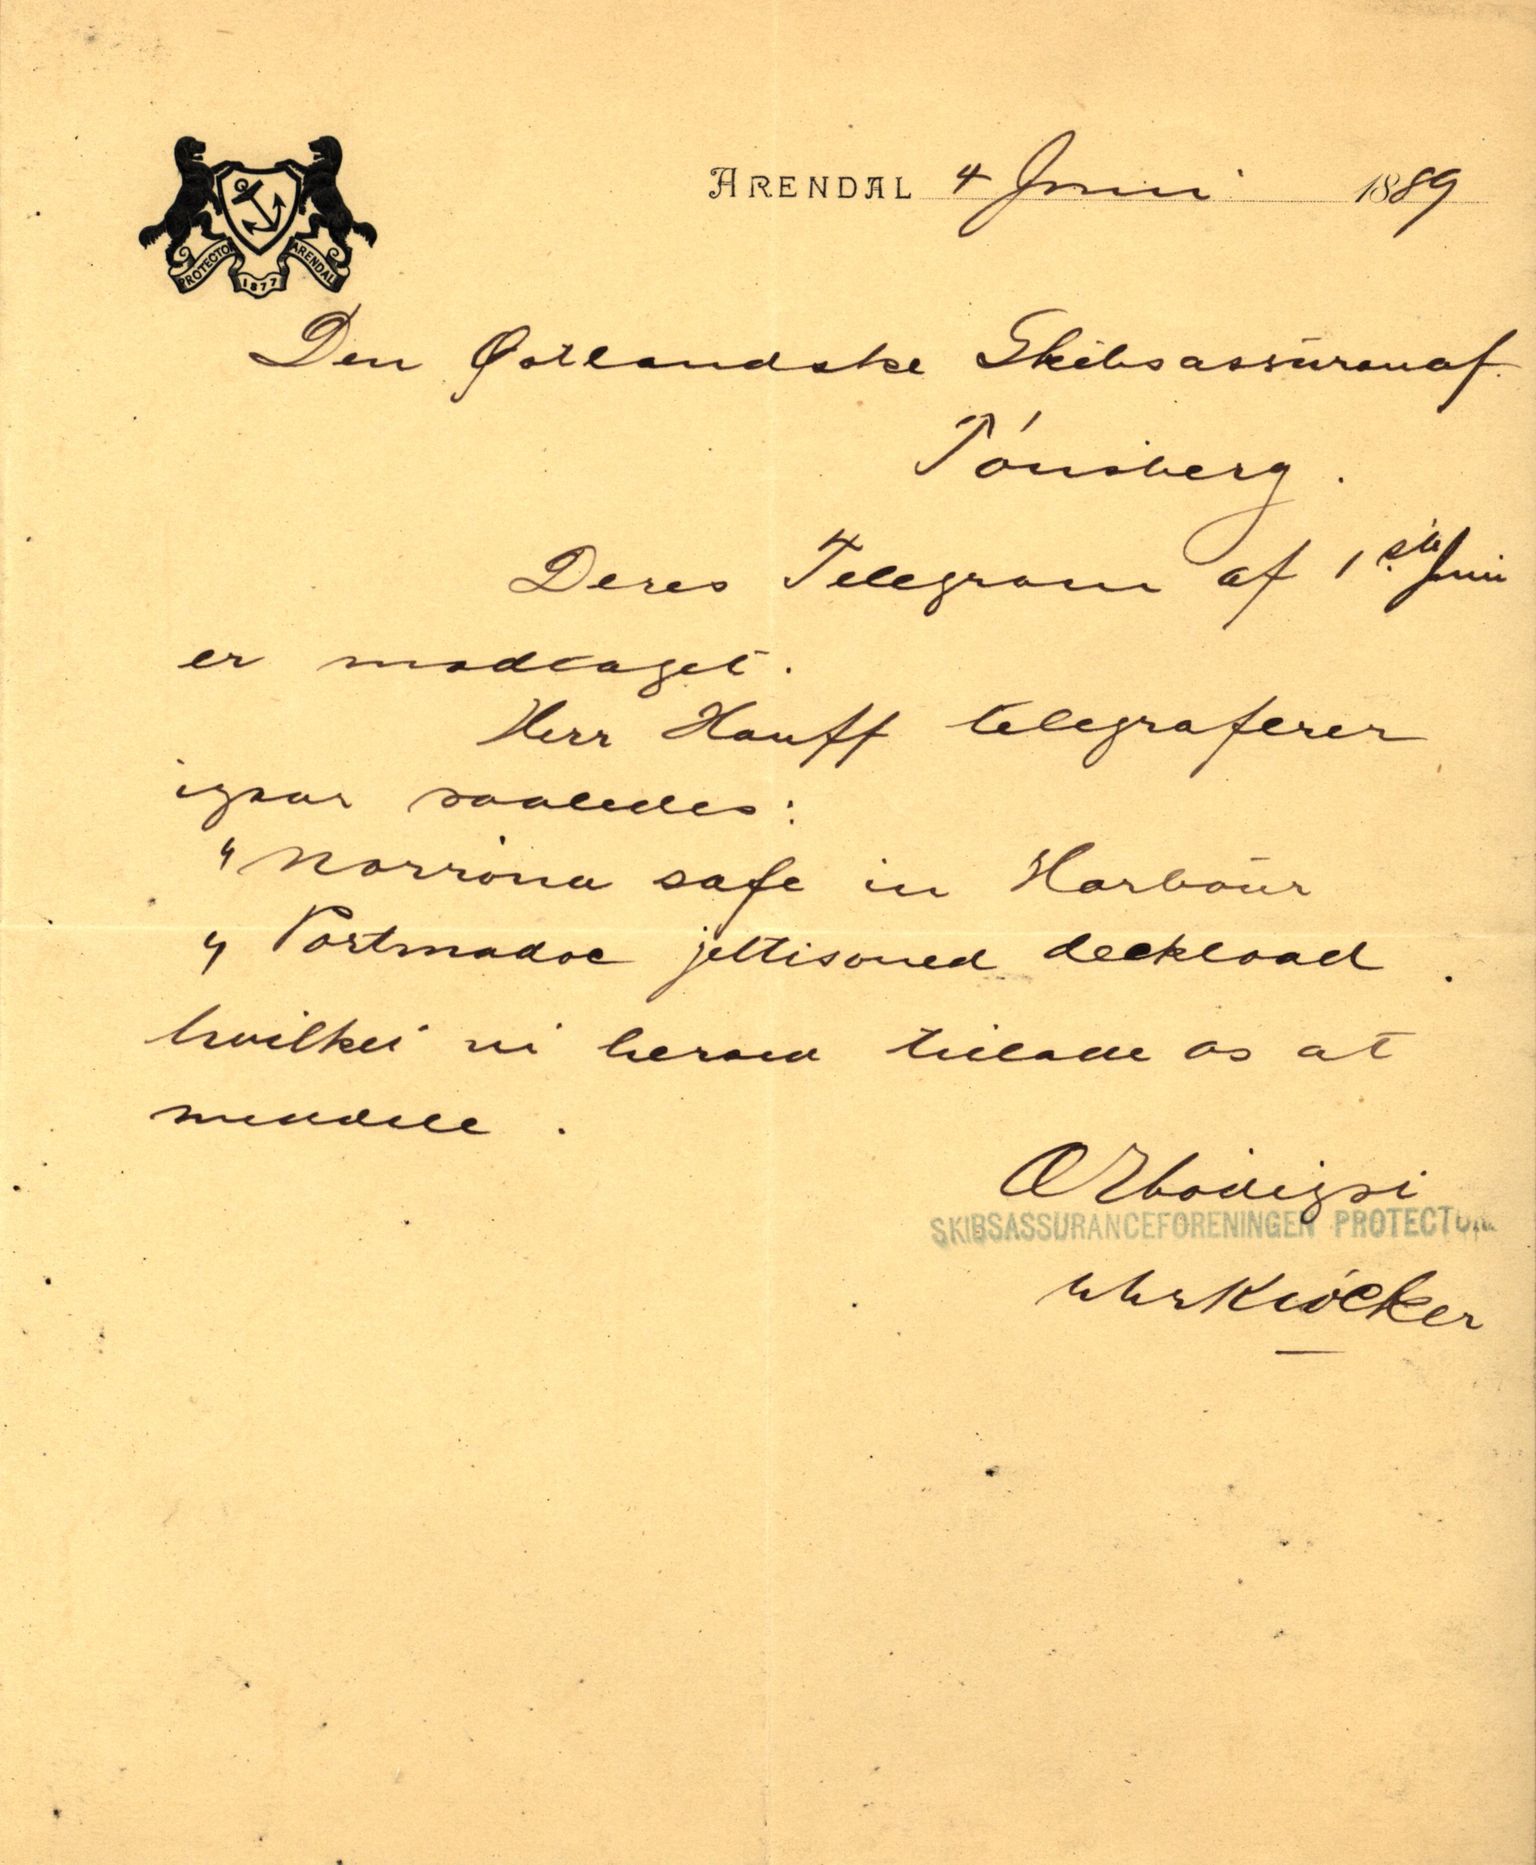 PROTECTO
1877
ARENDAL
ARENDAL 4 Juni 1889
Den Østlandske Skibsassuranef.
Tónsberg.
Deres Telegram af 1ste Juni
er modtaget.
Herr Hauff telegraferer
igaar saaledes:
"Norróna safe in Harbour
" Portmadoc jettisoned deckload.
hvilket vi herved tillade os at
meddele.
Ærbódigst
SKIBSASSURANCEFORENINGEN PROTECTOR
Klöcker